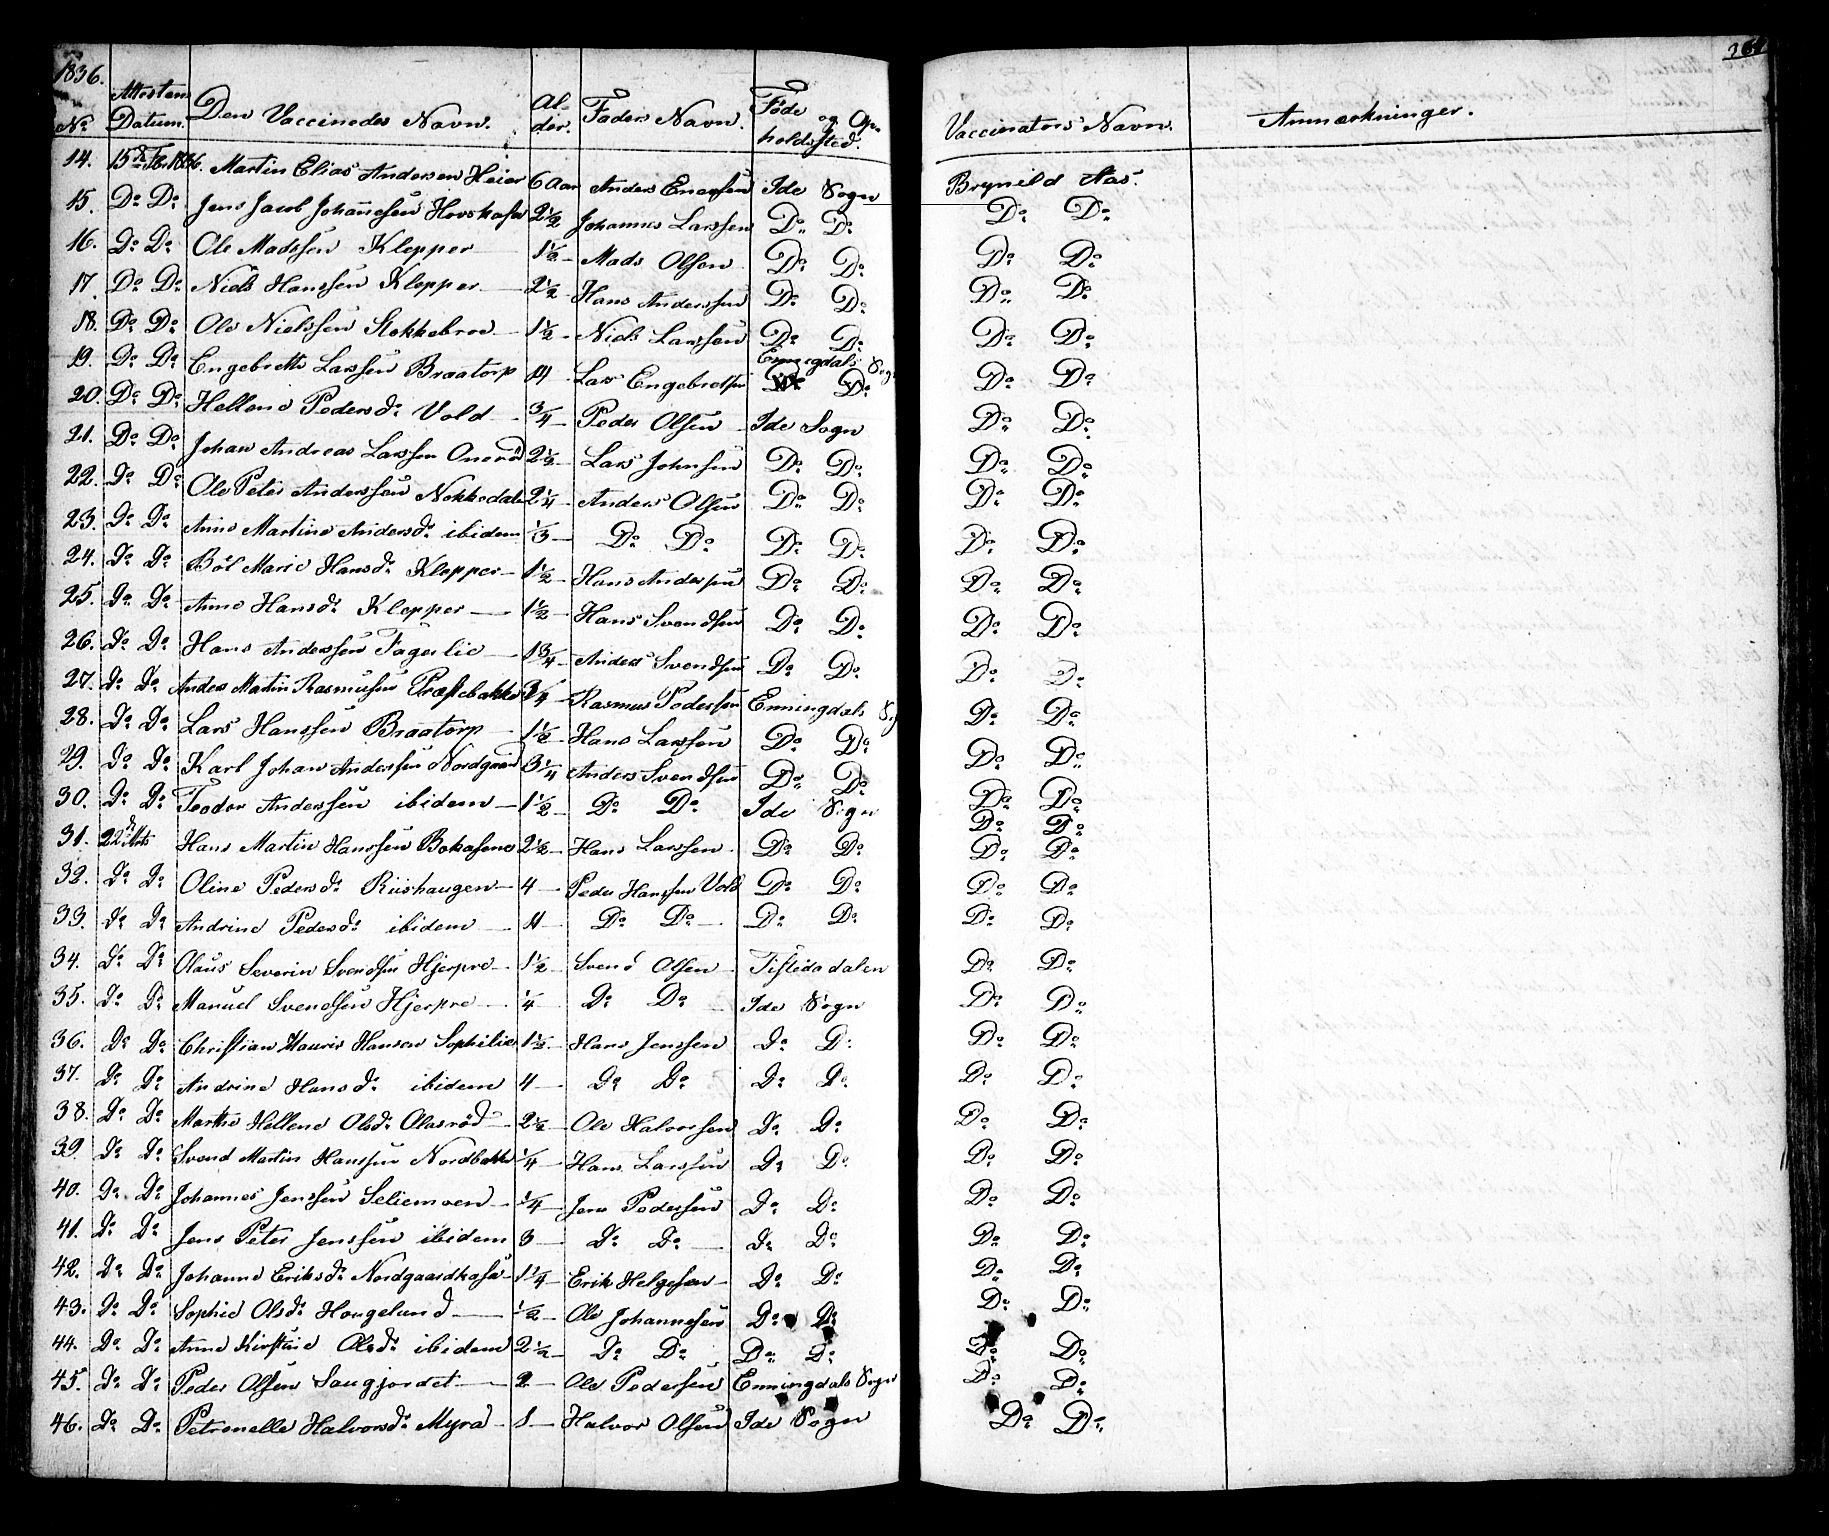 1836.
No Attestens Datum. Den Vaccinedes Navn. Al-der. Faders Navn. Føde og Op-holdssted. Vaccinators Navn. Anmærkninger.
14. 15de 1836. Martin Elias Andersen Heier 6 Aar Anders Enersen Ide Sogn Brynild Aas.
15. Do Do Jens Jacob Johannesen 2 1/2 Johannes Larssen Do Do Do Do
16. Do Do Ole Madssen Klepper 1 1/2 Mads Olsen Do Do Do Do
17. Do Do Niels Hanssen Klepper 2 1/2 Hans Anderssen Do Do Do Do
18. Do Do Ole Nielssen Stokkebroe 1 1/2 Niels Larssen Do Do Do Do
19. Do Do Engebreth Larssen Braatorp Lars Engebretsen Enningdals Sogn Do Do Do
20. Do Do Hellene Pedersd. Vold 3/4 Peder Olsen Ide Sogn Do Do
21. Do Do Johan Andreas Larssen Lars Johnsen Do Do Do Do
22. Do Do Ole Peter Anderssen Nokkedalen 2 1/4 Anders Olsen Do Do Do Do
23. Do Do Anne Martine Andersd. ibidem 1/3 Do Do Do Do Do Do
24. Do Do Böl Marie Hansd. Klepper 1 1/2 Hans Anderssen Do Do Do Do
25. Do Do Anne Hansd. Klepper 1 1/2 Hans Svendsen Do Do Do Do
26. Do Do Hans Anderssen Fagerlie 1 3/4 Anders Svendsen Do Do Do Do
27. Do Do Anders Martin Rasmussen Præstebakke 3/4 Rasmus Pederssen Enningdals Do Do
28. Do Do Lars Hanssen Braatorp 1 1/2 Hans Larssen Do Do Do Do
29. Do Do Karl Johan Anderssen Nordgaard 3 1/4 Anders Svendsen Do Do Do Do
30. Do Do Teodor Anderssen ibidem 1 1/2 Do Do Ide Sogn Do Do
31. 22de Marts Hans Martin Hanssen 2 1/2 Hans Larssen Do Do Do Do
32. Do Do Oline Pedersd. Riishaugen 4 Peder Hanssen Vold Do Do Do Do
33. Do Do Andrine Pedersd. ibidem Do Do Do Do Do Do
34. Do Do Olaus Severin Svendsen Hjerpre 1 1/2 Svend Olsen Tistedadalen Do Do
35. Do Do Manuel Svendsen Hjerpre 1/4 Do Do Ide Sogn Do Do
36. Do Do Christian Mauris Hansen Sophilie 1 1/2 Hans Jenssen Do Do Do Do
37. Do Do Andrine Hansd. ibidem 4 Do Do Do Do Do Do
38. Do Do Marthe Hellene Olsd. Olasröd 2 1/2 Ole Halvorsen Do Do Do Do
39. Do Do Svend Martin Hanssen Nordbakke 1/4 Hans Larssen Do Do Do Do
40. Do Do Johannes Jenssen Seliemoen 1/4 Jens Pederssen Do Do Do Do
41. Do Do Jens Peter Jenssen ibidem 3 Do Do Do Do Do Do
42. Do Do Johanne Eriksd. Nordgaardkasa 1 1/4 Erik Helgesen Do Do Do Do
43. Do Do Sophie Olsd. Hougelund 1/2 Ole Johannessen Do Do Do Do
44. Do Do Anne Kirstine Olsd. ibidem 2 1/2 Do Do Do Do Do Do
45. Do Do Peder Olsen Saugjordet 2 Ole Pederssen Enningdals Sogn Do Do
46. Do Do Petronelle Halvorsd. Myra 1 Halvor Olsen Ide Sogn Do Do